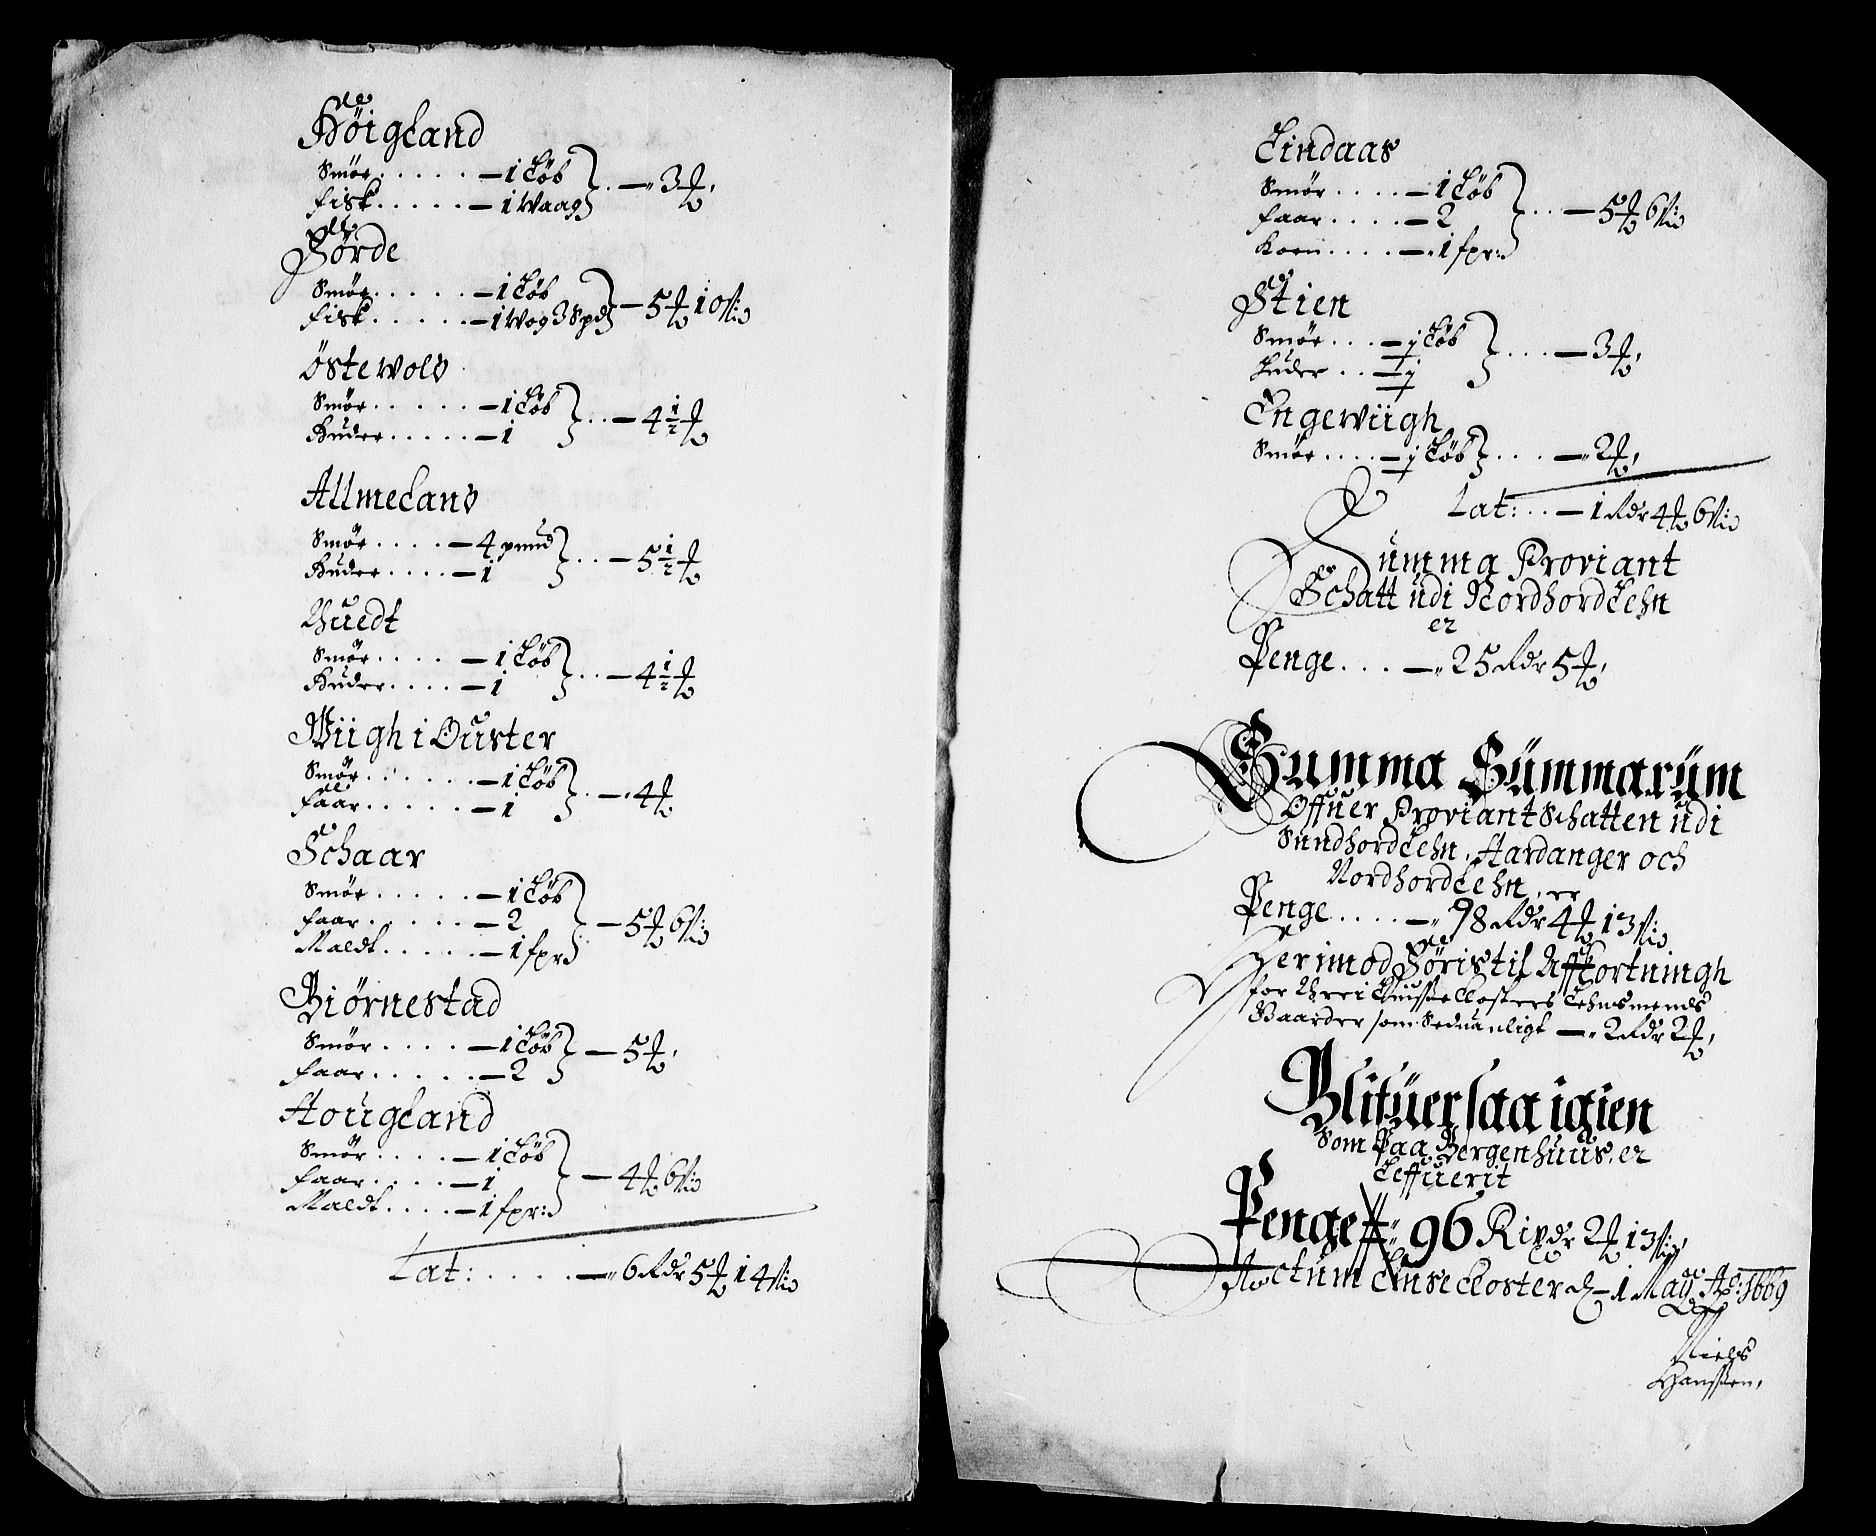 Höigland
Smör . . . . . — 1 Löb
Fisk . . . . . — 1 Waag } . . — 3 ₰
Förde
Smör . . . . . — 1 Löb
Fisk . . . . . — 1 Wog 3 Spd } — 5 ₰ 10 ß
Östewold
Smör . . . . . — 1 Löb
Huder . . . . . — 1 } . . — 4 ½ ₰
Allmeland
Smör . . . . — 4 pund
Huder . . . . — 1 } . . — 5 ½ ₰
Thuedt
Smör . . . . — 1 Löb
Huder . . . . — 1 } . . — 4 ½ ₰
Wiigh i Ouster
Smör . . . . . — 1 Löb
Faar . . . . . — 1 } . . — 4 ₰
Schaar
Smör . . . . . — 1 Löb
Faar . . . . . — 2
Maldt . . . . . — 1 fpr } — 5 ₰ 6 ß
Biörnestad
Smör . . . . — 1 Löb
Faar . . . . . — 2 } — 5 ₰
Hougland
Smör . . . . — 1 Löb
Faar . . . . — 1
Maldt . . . . — 1 fpr: } — 4 ₰ 6 ß
Lat: . . . . . — 6 Rdr 5 ₰ 14 ß
Lindaas
Smör . . . . — 1 Löb
Faar . . . . — 2
Korn . . . . — 1 fpr: } . . — 5 ₰ 6 ß
Stien
Smör . . . — j Löb
Huder . . — j } . . . — 3 ₰
Engewiigh
Smör . . . . — j Löb } . . . — 2 ₰
Lat: . . — 1 Rdr 4 ₰ 6 ß
Summa Proviant
Schatt udi Nordhordlehn
er
Penge . . . — 25 Rdr 5 ₰
Summa Summarum
Offuer Proviant Schatten udi
Sundhordlehn, Hardanger och
Nordhordlehn, er
Penge . . . . — 98 Rdr 4 ₰ 13 ß
Herimod Föris til Affkortningh
for Threi Liusse Closters Lehnsmends
Gaarder som Seduanligt — 2 Rdr 2 ₰
Blifuer saa igien
Som Paa Bergenhuus, er
Leffuerit
Penge — 96 Rixdr 2 ₰ 13 ß
Actum Liuse Closter d — 1 May Ao: 1669
Niels
Hanssen